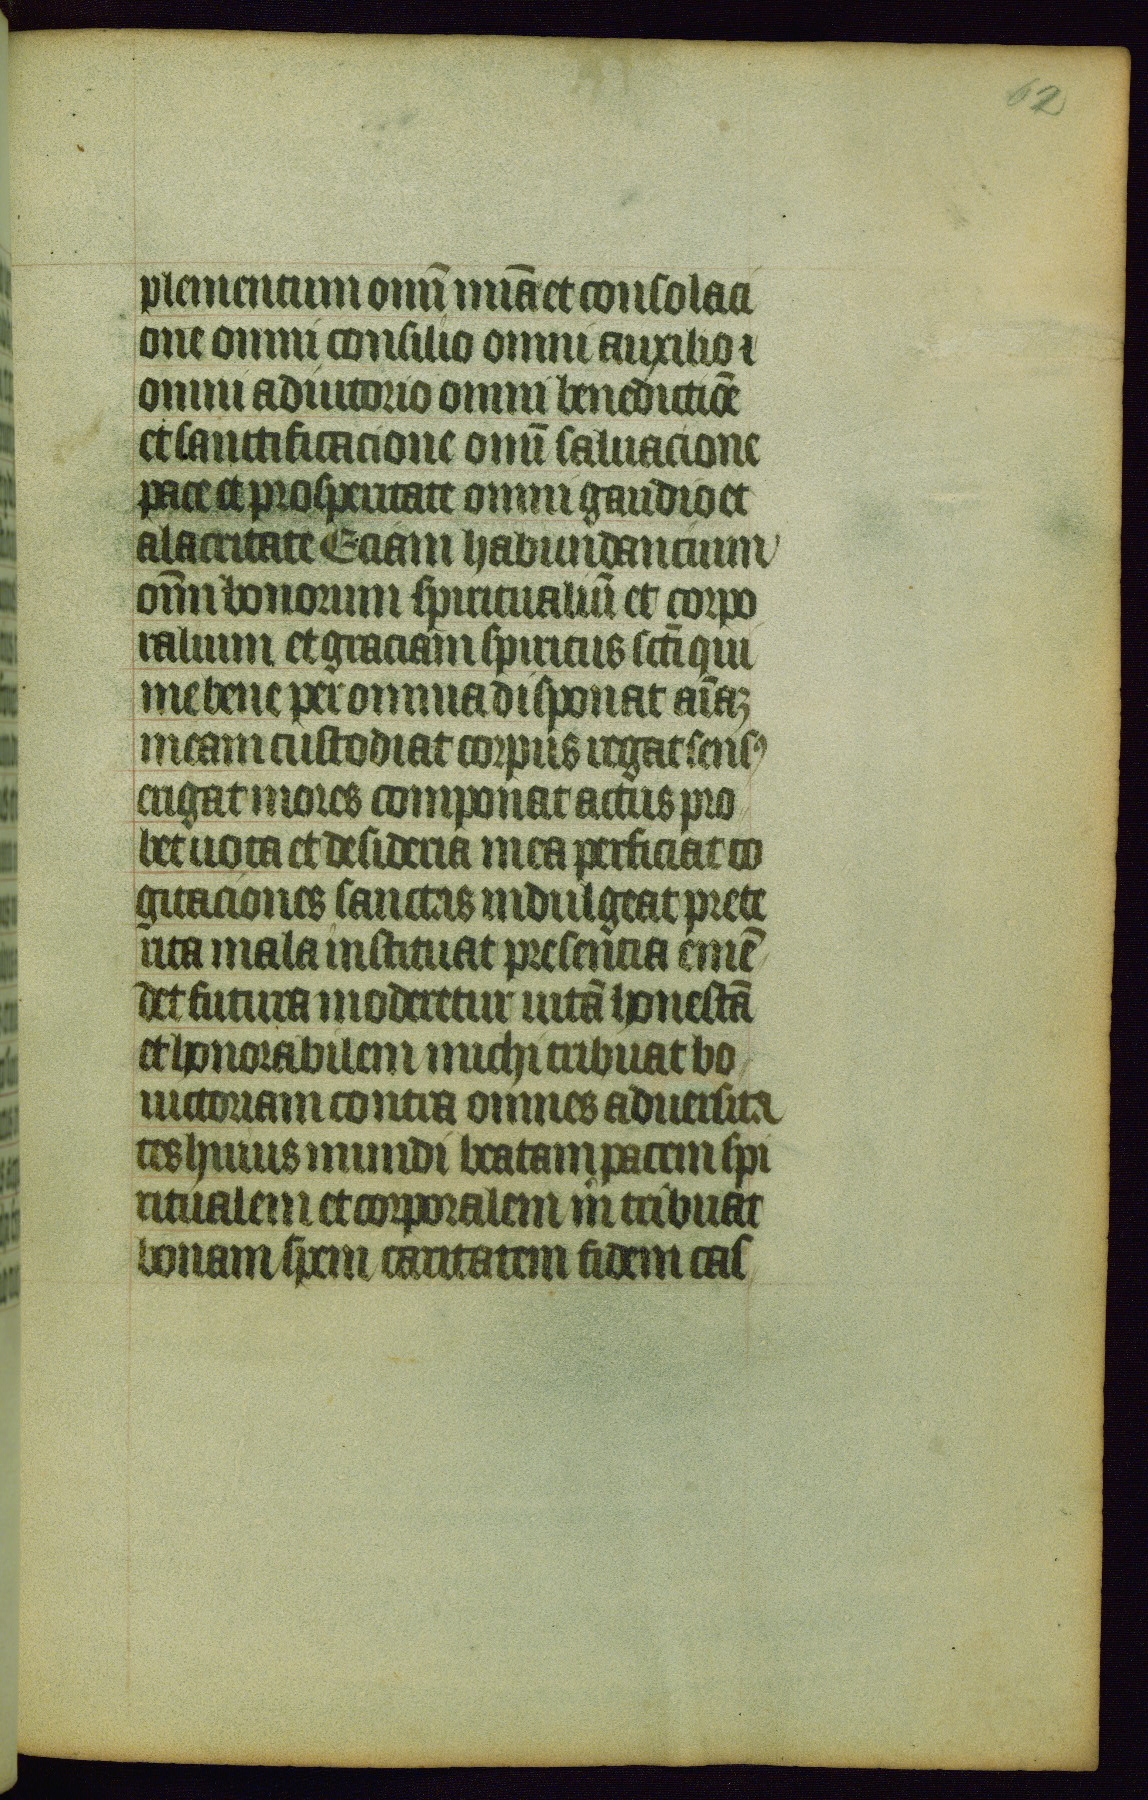 62
plementum omī mīa et consolaci
one omni consilio omni auxilio ⁊
omni adiutorio omni benedictiōe
et sanctificacione omī saluacione
pace et prosperitate omni gaudio et
alacritate Eciam habundancium
om̄i bonorum spiritualiū et corpo
ralium et graciam spiritus scī qui
me bene per omnia disponat aīaꝫ
meam custodiat corpus regat sensꝰ
erigat mores componat actus pro
bet uota et desideria mea perficiat co
gitaciones sanctas indulgeat prete
rita mala instituat presentia emē
det futura moderetur uitā honestā
et honorabilem michi tribuat bo
uictoriam contra omnes aduersita
tes huius mundi beatam pacem spi
ritualem et corporalem m tribuat
bonam spem caritatem fidem cas